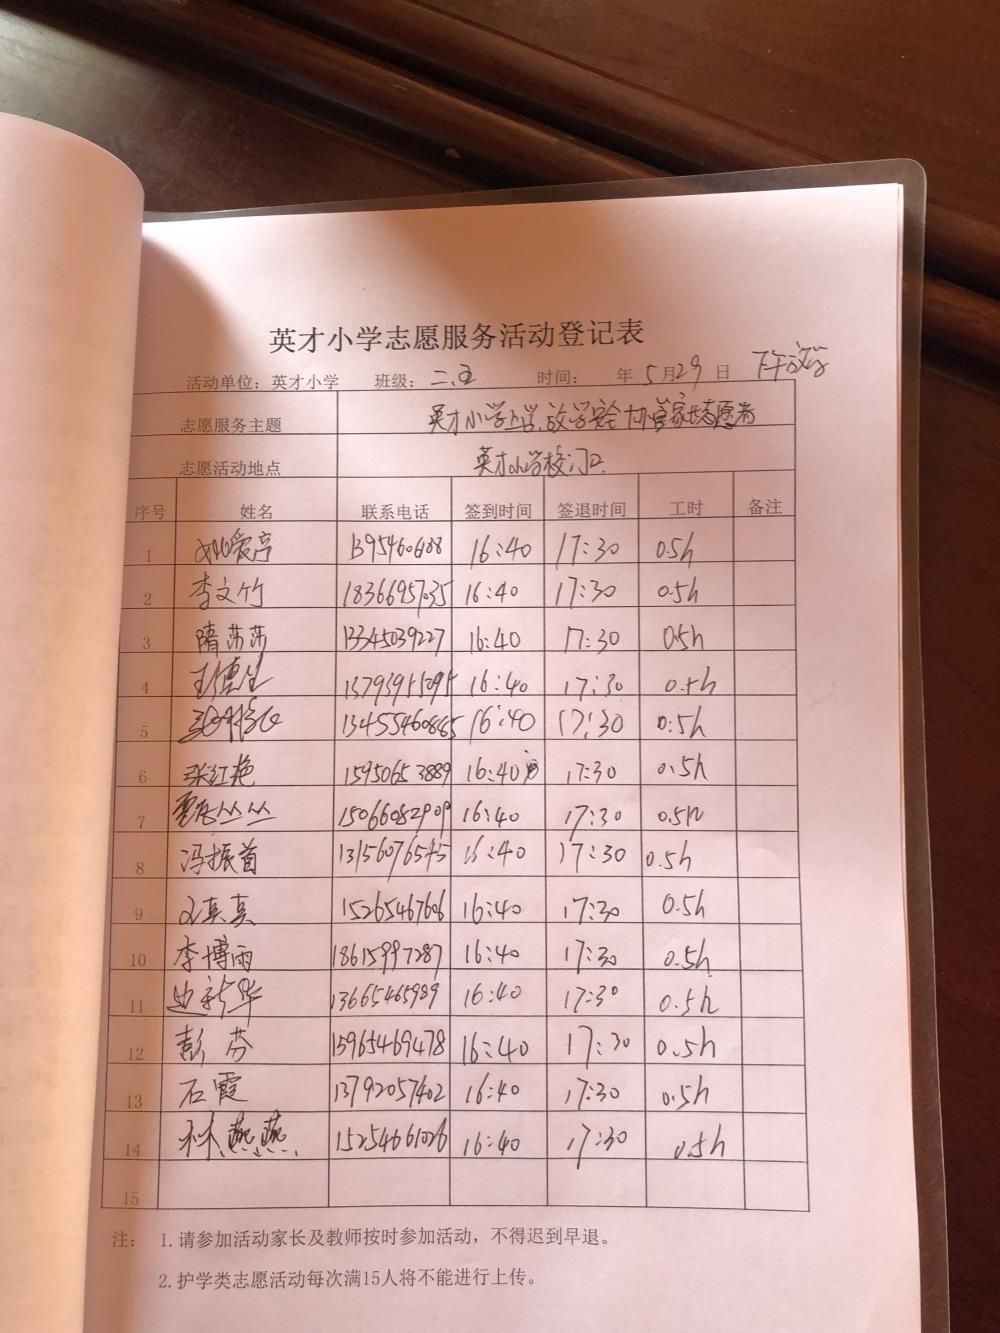 英才小学志愿服务活动登记表
活动单位：英才小学 班级：二.五 时间： 年 5月29日 下午放学
志愿服务主题 英才小学上学.放学安全护管家长志愿者
志愿活动地点 英才小学校门口
序号 姓名 联系电话 签到时间 签退时间 工时 备注
1 爱亭 16:40 17:30 0.5h
2 李文竹 18366957035 16:40 17:30 0.5h
3 隋莎莎 13345039227 16:40 17:30 0.5h
4 16:40 17:30 0.5h
5 16:40 17:30 0.5h
6 张红艳 15950653889 16:40 17:30 0.5h
7 丛丛 15066082909 16:40 17:30 0.5h
8 冯振首 13156076545 16:40 17:30 0.5h
9 真真 15265467606 16:40 17:30 0.5h
10 李博雨 18615997287 16:40 17:30 0.5h
11 新华 13665465989 16:40 17:30 0.5h
12 彭芬 15965469478 16:40 17:30 0.5h
13 石霞 13792057402 16:40 17:30 0.5h
14 林燕燕 15254661026 16:40 17:30 0.5h
15
注： 1.请参加活动家长及教师按时参加活动，不得迟到早退。
2.护学类志愿活动每次满15人将不能进行上传。